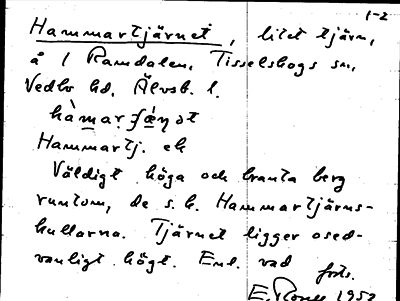 1-2
Hammartjärnet, litet tjärn,
å l Ramdalen, Tisselskogs sn,
Vedbo hd, Älvsb. l.
Hammartj. ek
Väldigt höga och branta berg
runtom, de s.k. Hammartjärns-
kullarna. Tjärnet ligger osed-
vanligt högt. Enl. vad
forts.
E. 1952